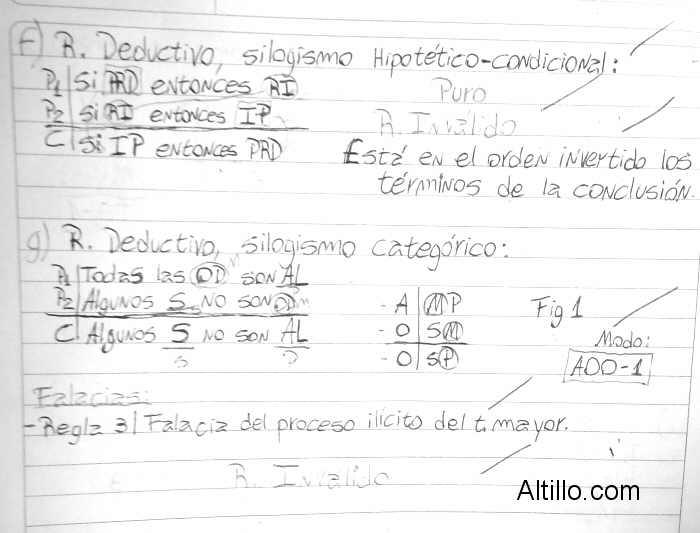 f) R. Deductivo, silogismo Hipotético-condicional:
P1 | Si PRD entonces RI
Puro
P2 | si RI entonces IP
R. Invalido
C | si IP entonces PRD
Está en el orden invertido los
términos de la conclusión.
g) R. Deductivo, silogismo categórico:
P1 | Todas las OD son AL
P2 | Algunos S no son OD
- A | MP
Fig 1
C | Algunos S no son AL
- O | SM
Modo:
S
P
- O | SP
AOO-1
Falacias:
- Regla 3 | Falacia del proceso ilícito del t. mayor.
R. Invalido
Altillo.com